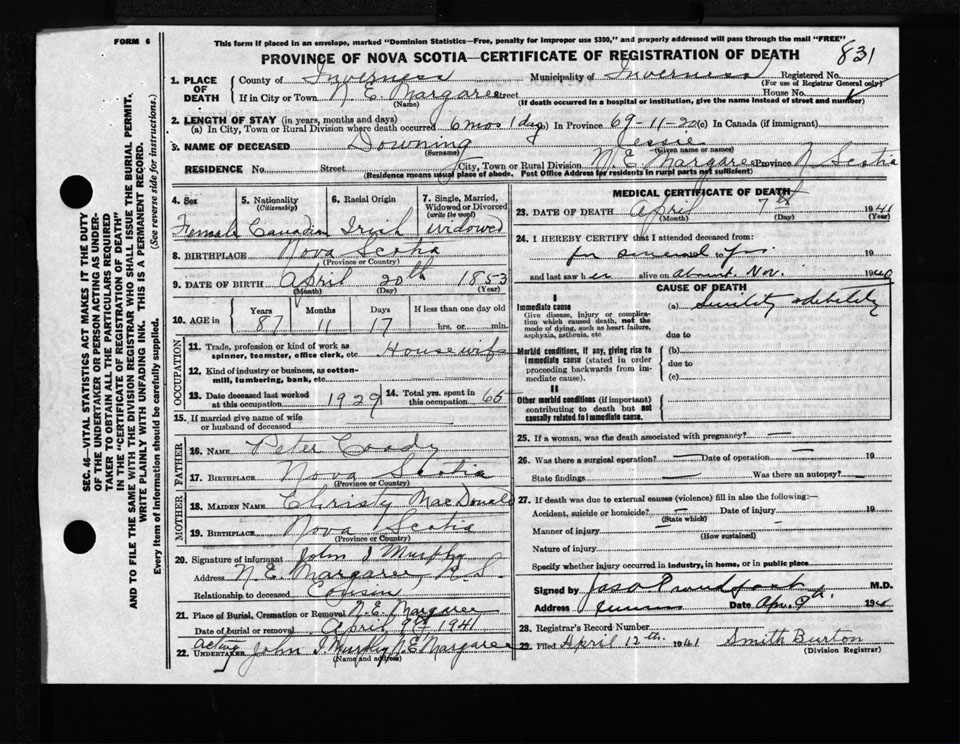 FORM 6
This form if placed in an envelope, marked "Dominion Statistics—Free, penalty for improper use $300," and properly addressed will pass through the mail "FREE"
PROVINCE OF NOVA SCOTIA—CERTIFICATE OF REGISTRATION OF DEATH
831
1. PLACE OF DEATH County of Inverness Municipality of Inverness Registered No.
(For use of Registrar General only)
If in City or Town N. E. Margaree street House No.
(Name) (If death occurred in a hospital or institution, give the name instead of street and number)
2. LENGTH OF STAY (in years, months and days)
(a) In City, Town or Rural Division where death occurred 6 mos 1 day (b) In Province 69-11-20 (c) In Canada (if immigrant)
3. NAME OF DECEASED Downing Jessie
(Surname) (Given name or names)
RESIDENCE No. Street City, Town or Rural Division N. E. Margaree Province N Scotia
(Residence means usual place of abode. Post Office Address for residents in rural parts not sufficient)
4. Sex 5. Nationality (Citizenship) 6. Racial Origin 7. Single, Married, Widowed or Divorced (write the word)
Female Canadian Irish Widowed
8. BIRTHPLACE Nova Scotia
(Province or Country)
9. DATE OF BIRTH April 20th 1853
(Month) (Day) (Year)
10. AGE in Years Months Days If less than one day old
87 11 17 hrs. or min.
OCCUPATION
11. Trade, profession or kind of work as spinner, teamster, office clerk, etc. Housewife
12. Kind of industry or business, as cotton-mill, lumbering, bank, etc.
13. Date deceased last worked at this occupation 1929 14. Total yrs. spent in this occupation 65
15. If married give name of wife or husband of deceased
FATHER
16. NAME Peter Coady
17. BIRTHPLACE Nova Scotia
(Province or Country)
MOTHER
18. MAIDEN NAME Christy MacDonald
19. BIRTHPLACE Nova Scotia
(Province or Country)
20. Signature of informant John J Murphy
Address N. E. Margaree N. S.
Relationship to deceased Cousin
21. Place of Burial, Cremation or Removal N. E. Margaree
Date of burial or removal April 9th 1941
22. Acting UNDERTAKER John J. Murphy N. E Margaree
(Name and address)
MEDICAL CERTIFICATE OF DEATH
23. DATE OF DEATH April 7th 1941
(Month) (Day) (Year)
24. I HEREBY CERTIFY that I attended deceased from:
for several to yrs 19
and last saw her alive on about Nov. 1940
CAUSE OF DEATH
I
Immediate cause (a) Senility & debility
Give disease, injury or complication which caused death, not the mode of dying, such as heart failure, asphyxia, asthenia, etc
due to
Morbid conditions, if any, giving rise to immediate cause (stated in order proceeding backwards from immediate cause).
(b)
due to
(c)
II
Other morbid conditions (if important) contributing to death but not causally related to immediate cause.
25. If a woman, was the death associated with pregnancy? —
26. Was there a surgical operation? — Date of operation — 19
State findings — Was there an autopsy? —
27. If death was due to external causes (violence) fill in also the following:—
Accident, suicide or homicide? — Date of injury — 19
(State which)
Manner of injury —
(How sustained)
Nature of injury
Specify whether injury occurred in industry, in home, or in public place
Signed by M.D.
Address Date Apr. 9th
28. Registrar's Record Number
29. Filed April 12th. 1941 Smith Burton
(Division Registrar)
SEC. 46—VITAL STATISTICS ACT MAKES IT THE DUTY
OF THE UNDERTAKER OR PERSON ACTING AS UNDERTAKER TO OBTAIN ALL THE PARTICULARS REQUIRED
IN THE "CERTIFICATE OF REGISTRATION OF DEATH"
AND TO FILE THE SAME WITH THE DIVISION REGISTRAR WHO SHALL ISSUE THE BURIAL PERMIT.
WRITE PLAINLY WITH UNFADING INK. THIS IS A PERMANENT RECORD.
Every item of information should be carefully supplied. (See reverse side for instructions.)